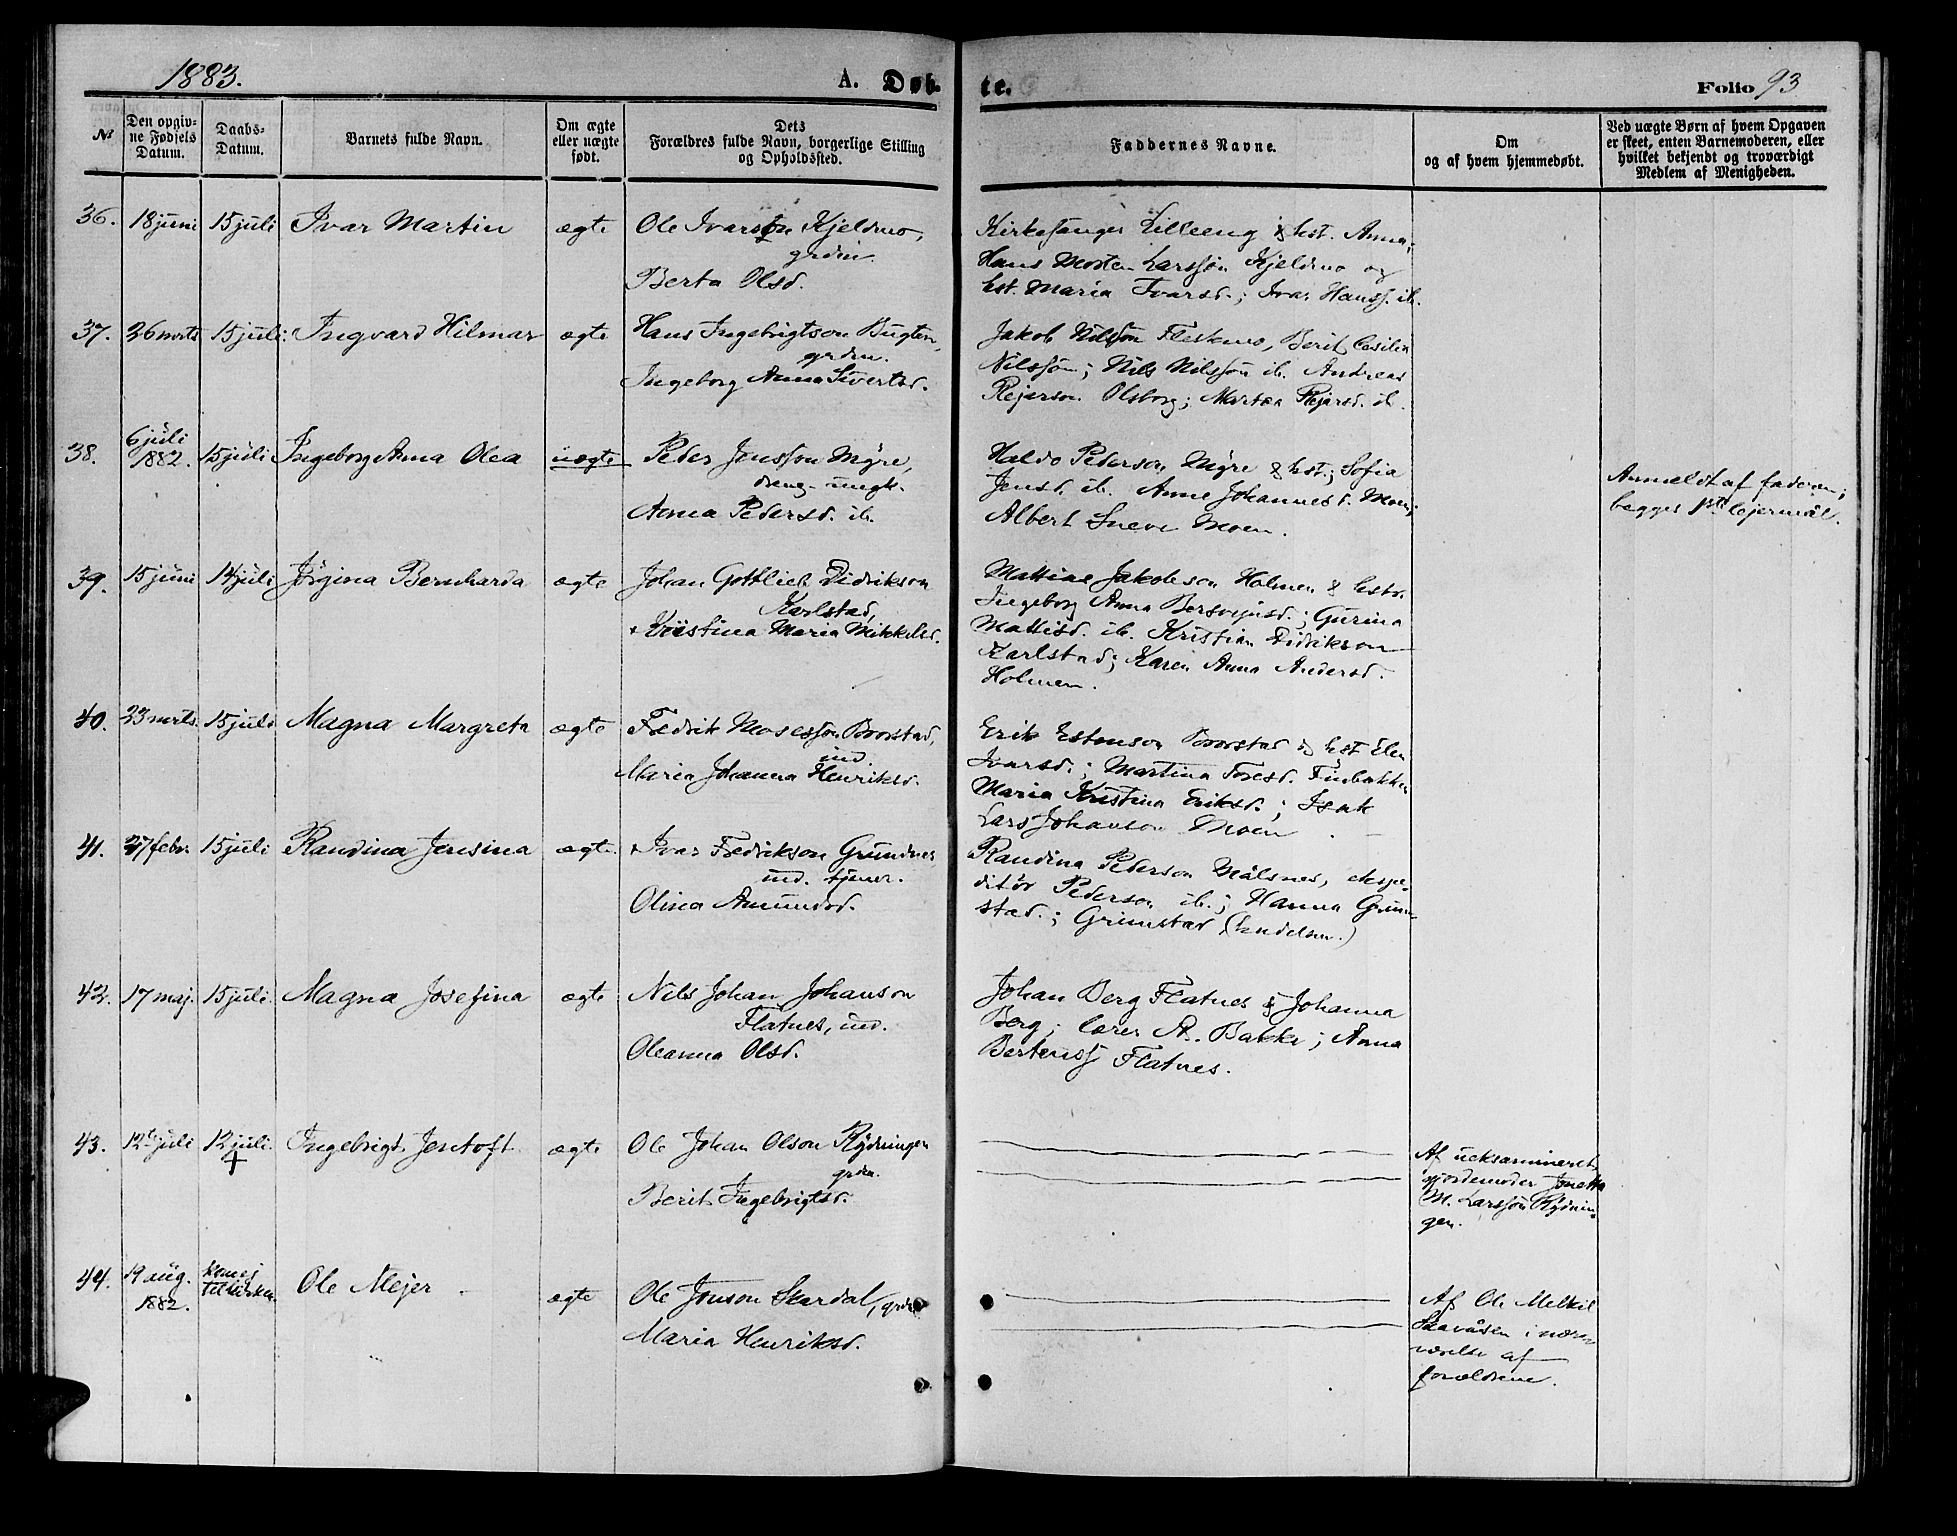 1883.
A. Døb-
te.
Folio 93
№
Den opgiv-
ne Fødsels
Datum.
Daabs-
Datum.
Barnets fulde Navn.
Om ægte
eller uægte
født.
Dets
Forældres fulde Navn, borgerlige Stilling
og Opholdssted.
Faddernes Navne.
Om
og af hvem hjemmedøbt.
Ved uægte Børn af hvem Opgaven
er skeet, enten Barnemoderen, eller
hvilket bekjendt og troværdigt
Medlem af Menigheden.
36. 18 juni 15 juli Ivar Martin ægte
Ole Ivarson Kjeldmo,
grdm.
Berta Olsd.
Kirkesanger Lilleeng & hst. Anna;
Hans Morten Larssøn Kjeldmo og
hst. Maria Ivarsd.; Ivar Hanss. ib.
37. 26 mrts 15 juli. Ingvard Hilmar ægte
Hans Ingebrigtson Bugten,
grdm.
Ingeborg Anna Sivertsd.
Jakob Nilsson Fleskmo, Berit Cesilia
Nilssøn; Nils Nilssøn ib. Andreas
Rejerson Olsborg; Martea Rejersd. ib.
38. 6 juli
1882. 15 juli Ingeborg Anna Olea uægte
Peder Jensson Myre,
ungk.
Anna Pedersd. ib.
Haldo Pederson Myre & hst.; Sofia
Jensd. ib. Anne Johannesd. Moen;
Albert Sneve Moen.
Anmeldt af faderen;
begges 1ste lejermål.
39. 15 juni 14 juli Jørgina Bernharda ægte
Johan Gottlieb Didrikson
Karlstad,
& Kristina Maria Mikkelsd.
Mattias Jakobson Holmen & hstr.
Ingeborg Anna Bersvejnsd.; Gurina
Mattisd. ib. Kristian Didrikson
Karlstad; Karen Anna Andersd.
Holmen.
40. 23 mrts. 15 juli Magna Margreta ægte
Fredrik Mosesson Brorstad,
ind.
Maria Johanna Henriksd.
Erik Estenson Brorstad & hst Elen
Ivarsd.; Martina Toresd. Finbakken
Maria Kristina Eriksd.; Isak
Lars Johanson Moen
41. 27 febr. 15 juli Randina Jensina ægte
Ivar Fredrikson Grundnes
ind. tjener.
Olina Amundsd.
Randina Pederson Målsnes, ekspe-
ditør Pederson ib.; Hanna Grim-
stad.; Grimstad
42. 17 maj. 15 juli. Magna Josefina ægte
Nils Johan Johanson
Flatnes, ind.
Oleanna Olsd.
Johan Berg Flatnes & Johanna
Berg; lærer A. Bakke; Anna
Bertenss Flatnes.
43. 12te juli 12 juli. Ingebrigt Jentoft ægte
Ole Johan Olson Rydningen
grdm.
Berit Ingebrigtsd.
Af ueksamineret
gjordemoder Jonetta
M. Larssøn Rydnin-
gen.
44. 19 aug.
1882. kom ej
til kirken. Ole Mejer ægte
Ole Jonson Skardal, grdm
Maria Henriksd.
Af Ole Melkil
i nær-
værelse af
forældrene.